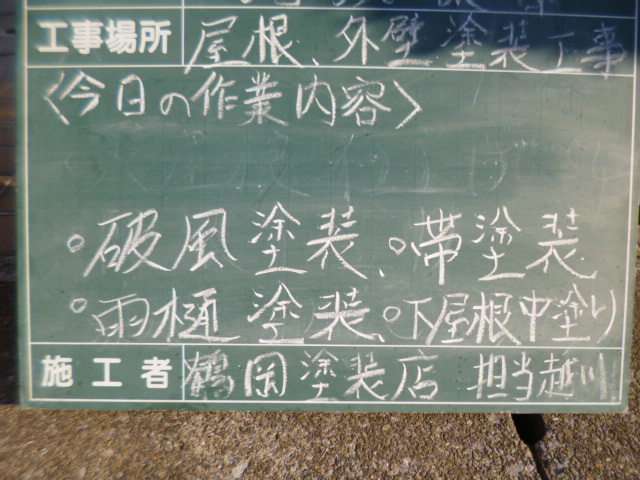 工事場所 屋根、外壁塗装工事
〈今日の作業内容〉
○破風塗装、○帯塗装
○雨樋塗装、○下屋根中塗り
施工者 鶴岡塗装店 担当越川